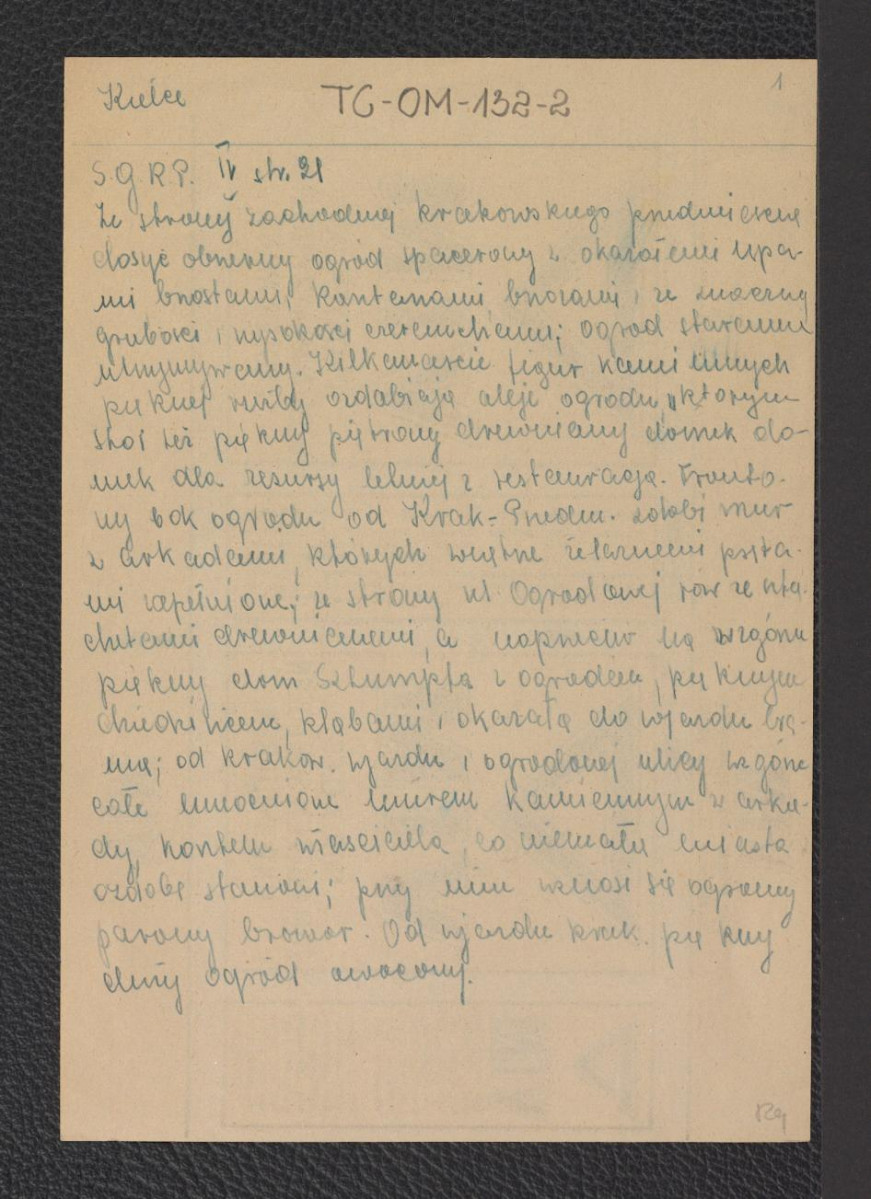 Kielce
TG-OM-132-2
1
S G K P. IV str. 21
Ze strony zachodniej krakowskiego przedmieścia
dosyć obszerny ogród spacerowy z okazałemi lipa-
mi brzostami, kasztanami, brzozami i ze znacznej
grubości i wysokości czeremchami; ogród starannie
utrzymywany. Kilkanaście figur kamiennych
pięknej rzeźby ozdabiają aleje ogrodu, w którym
stoi też piękny piętrowy drewniany domek do-
mek dla resursy letniej z restauracją. Fronto-
wy bok ogrodu od Krak-Przedm. zdobi mur
z arkadami, których wnętrze żelaznemi pręta-
mi zapełnione; ze strony ul Ogrodowej rów ze szta-
chetami drewnianemi, a naprzeciw na wzgórzu
piękny dom Sztumpfa z ogrodem, pięknym
dziedzińcem, kłąbami i okazałą do wjazdu bra-
mą; od krakow. wjazdu i ogrodowej ulicy wzgórze
całe umocnione murem kamiennym w arka-
dy, kosztem właściciela, co niemałą miasta
ozdobę stanowi; przy nim wznosi się ogromny
parowy browar. Od wjazdu krak. piękny
duży ogród owocowy.